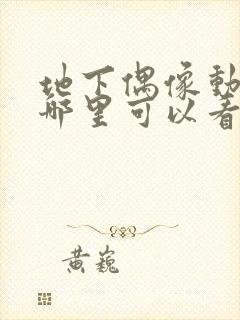 地下偶像動
哪里可以看
黄巍